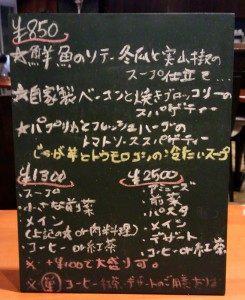 ¥850
★鮮魚のソテー 冬瓜と実山椒の
スープ仕立て
★自家製ベーコンと焼きブロッコリーの
スパゲティー
★パプリカとフレッシュハーブの
トマトソーススパゲティー
じゃが芋とトウモロコシの冷たいスープ
¥1300
スープ
小さな前菜
メイン
(上記の魚or肉料理)
コーヒーor紅茶
¥2500
前菜
パスタ
メイン
デザート
コーヒーor紅茶
※ +¥100で大盛り可。
コーヒー・紅茶・デザートのご用意